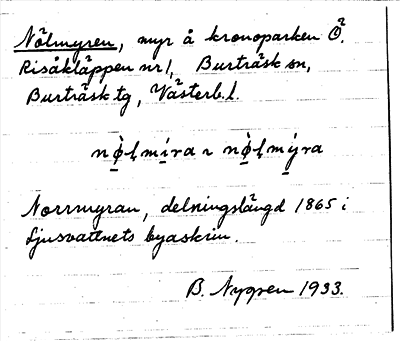 Nölmyren, myr å kronoparken Ö.
Risåkläppen nr 1, Burträsk sn,
Burträsk tg, Västerb. l.
nø̀lmíra ~ nø̀lmýra
Norrmyran, delningslängd 1865 i
Ljusvattnets byaskrin.
B. Nygren 1933.